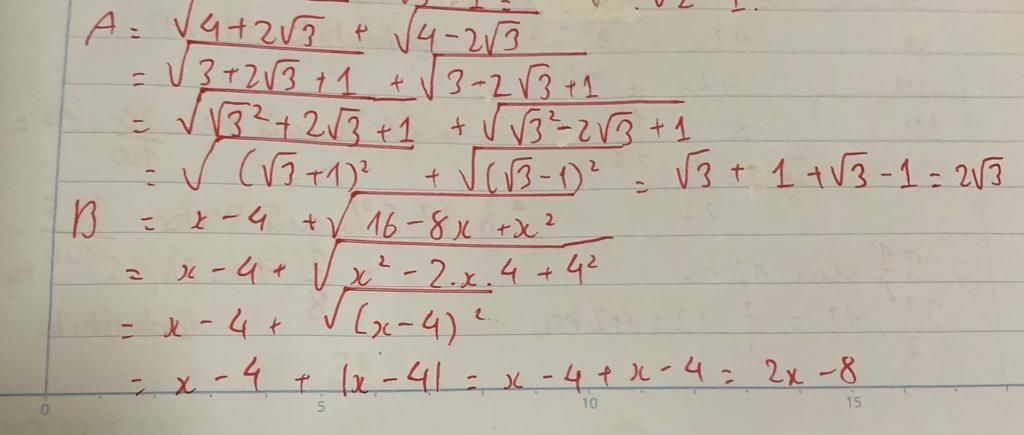 √2 - 1.
A = √4+2√3 + √4-2√3
= √3+2√3+1 + √3-2√3+1
= √√3²+2√3+1 + √√3²-2√3+1
= √(√3+1)² + √(√3-1)² = √3 + 1 + √3 - 1 = 2√3
B = x - 4 + √16-8x+x²
= x - 4 + √x² - 2.x.4 + 4²
= x - 4 + √(x-4)²
= x - 4 + |x - 4| = x - 4 + x - 4 = 2x - 8
0 5 10 15